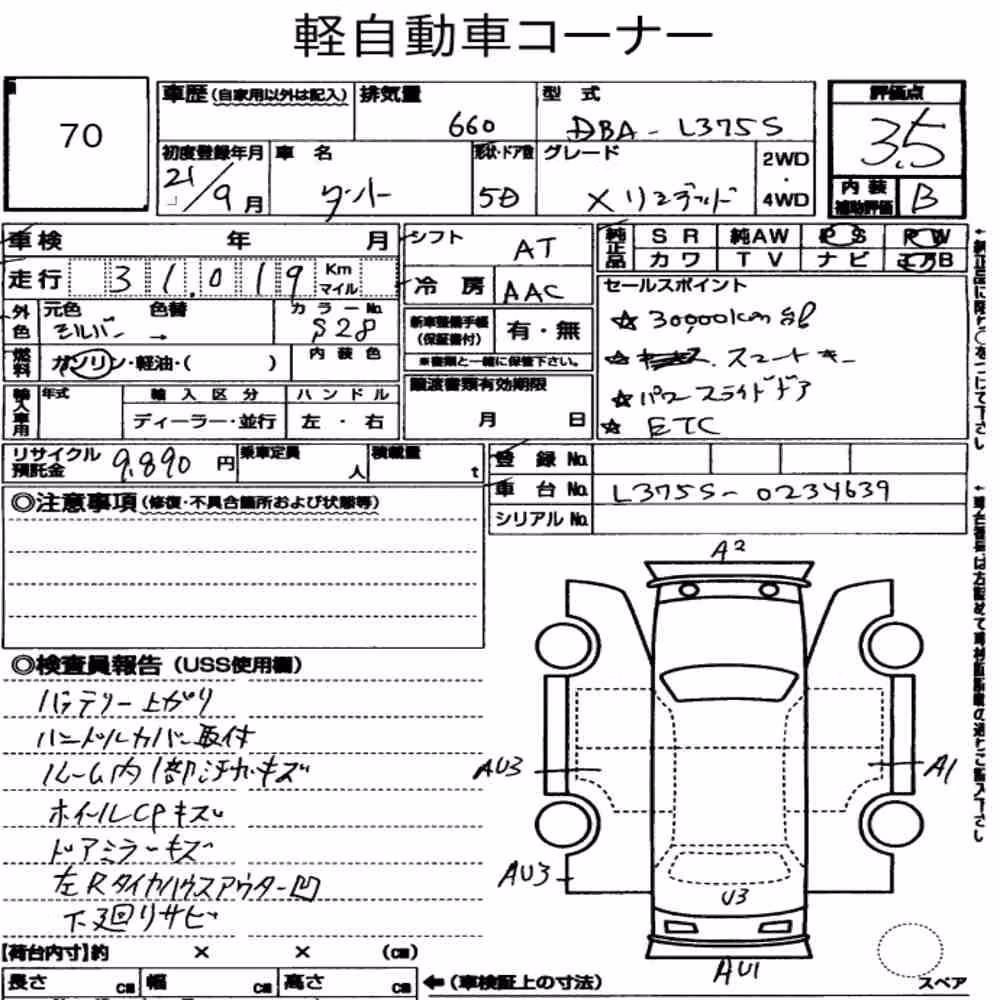 軽自動車コーナー
70
車歴 (自家用以外は記入) 排気量 型式 評価点
660 DBA-L375S 3.5
初度登録年月 車名 形状・ドア数 グレード 2WD・4WD 内装補助評価
21/9月 タント 5D Xリミテッド B
車検 年 月 シフト AT 純正品 SR 純AW PS PW
走行 31,019 Km マイル 冷房 AAC カワ TV ナビ エアB
外色 元色 色替 カラーNo.
シルバー → S28
新車整備手帳(保証書付) 有・無
※書類と一緒に保管下さい。
燃料 ガソリン・軽油・( ) 内装色
譲渡書類有効期限
月 日
セールスポイント
☆ 30,000km台
☆ スマートキー
☆ パワースライドドア
☆ ETC
輸入車用 年式 輸入区分 ハンドル
ディーラー・並行 左・右
リサイクル預託金 9,890円 乗車定員 人 積載量 t
登録No.
車台No. L375S-0234639
シリアルNo.
←純正品に限り○をつけて下さい
◎注意事項(修復・不具合箇所および状態等)
◎検査員報告(USS使用欄)
バッテリー上がり
ハンドルカバー取付
ルーム内1部汚れキズ
ホイールCPキズ
ドアミラーキズ
左Rタイヤハウスアウター凹
下廻りサビ
A2
AU3
A1
AU3
U3
AU1
スペア
【荷台内寸】約 × × (cm)
長さ cm 幅 cm 高さ cm ←(車検証上の寸法)